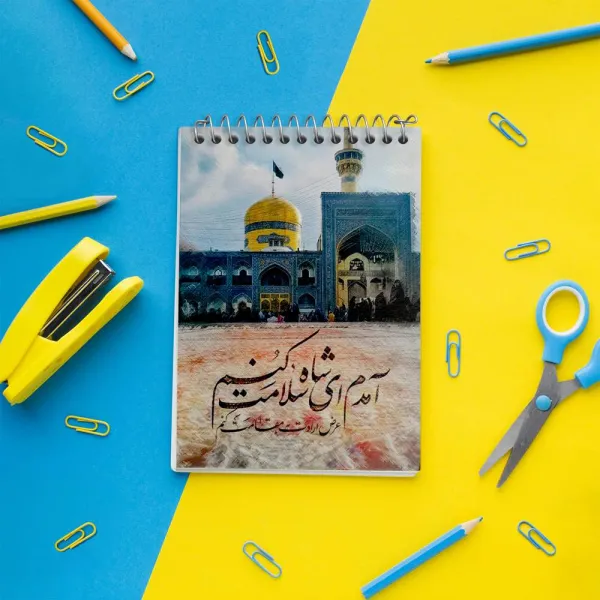 آمدم ای شاه سلامت کنم
عرض ارادت به مقامت کنم